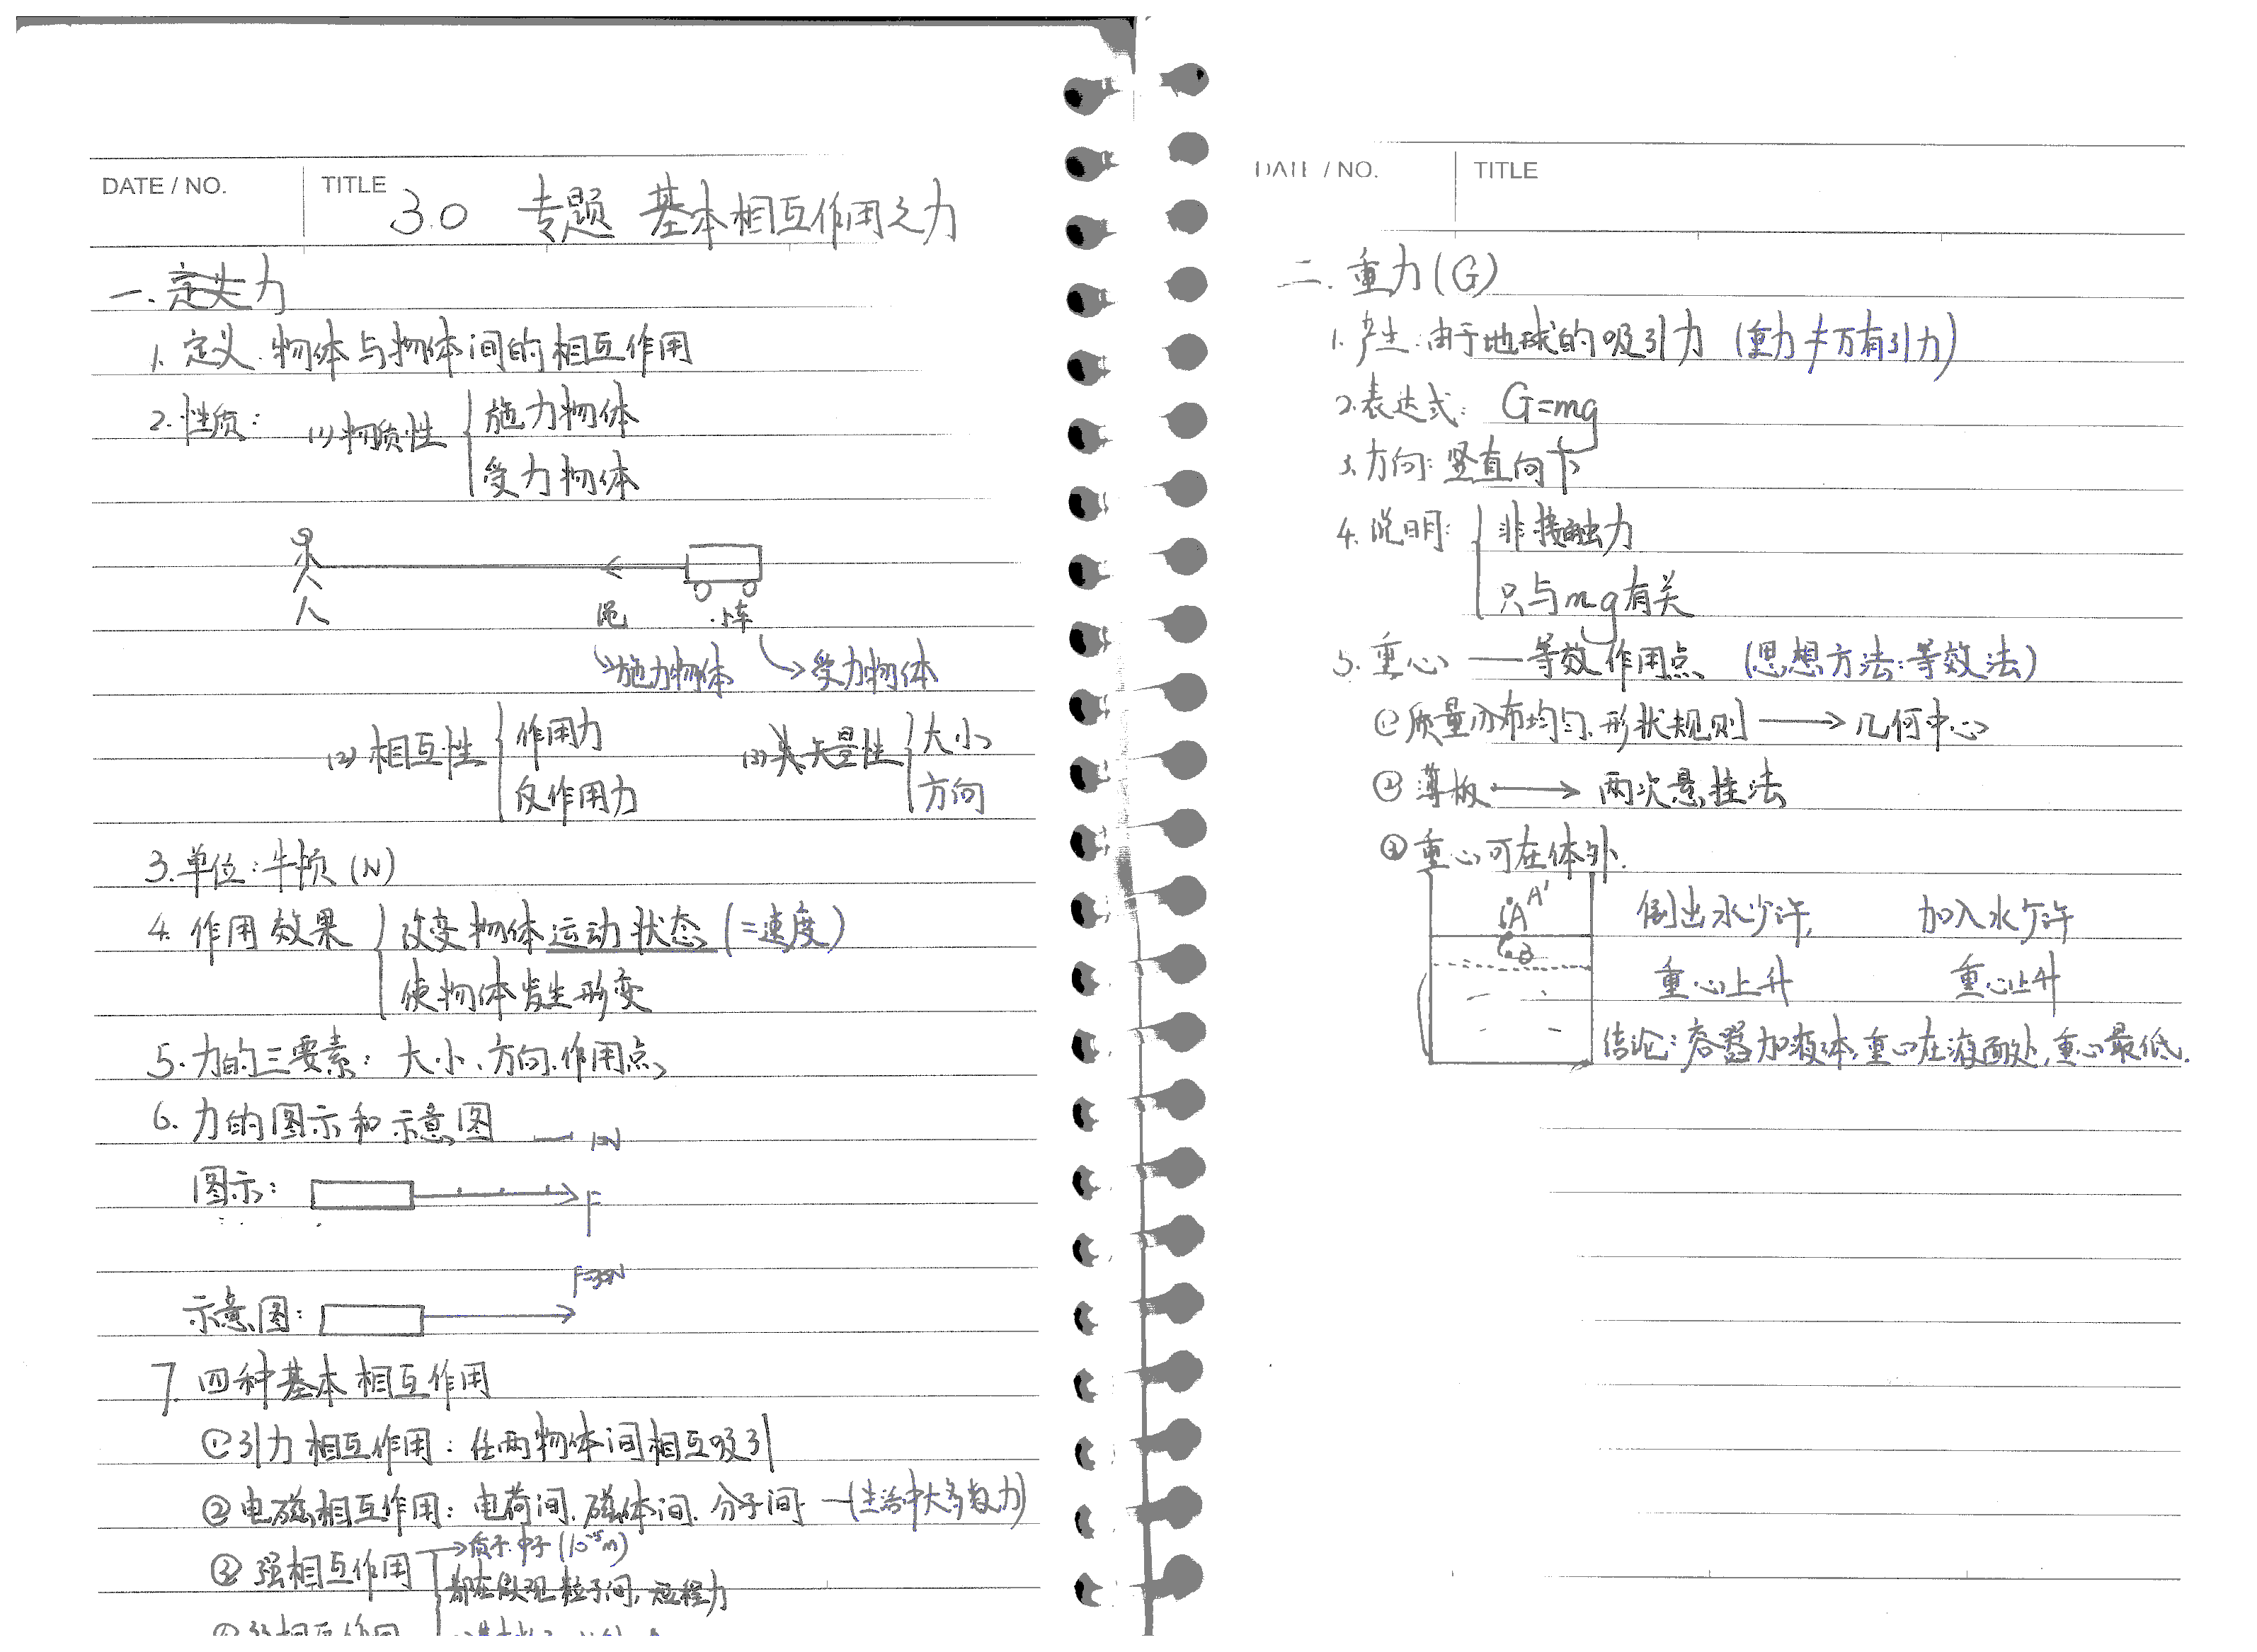 DATE / NO. TITLE 3.0 专题 基本相互作用之力
一. 力
1. 定义.物体与物体间的相互作用
2.性质: (1)物质性 施力物体
受力物体
人 绳 小车
→施力物体 →受力物体
(2)相互性 作用力 (3)矢量性 大小
反作用力 方向
3.单位:牛顿(N)
4.作用效果 改变物体运动状态(=速度)
使物体发生形变
5.力的三要素: 大小、方向.作用点
6. 力的图示和示意图 10N
图示: F
F=30N
示意图:
7 四种基本相互作用
①引力相互作用: 任两物体间相互吸引
②电磁相互作用: 电荷间.磁体间.分子间 —(生活中大多数力)
③强相互作用 →质子.中子(10⁻¹⁵m)
都在微观粒子间,短程力
DATE / NO. TITLE
二.重力(G)
1.产生:由于地球的吸引力 (重力≠万有引力)
2.表达式: G=mg
3.方向:竖直向下
4.说明: 非接触力
只与mg有关
5.重心 —— 等效作用点 (思想方法:等效法)
①质量分布均匀.形状规则 → 几何中心
②薄板 → 两次悬挂法
③重心可在体外.
A A' 倒出水少许, 加入水少许
B
重心上升 重心上升
结论:容器加液体,重心在液面处,重心最低.